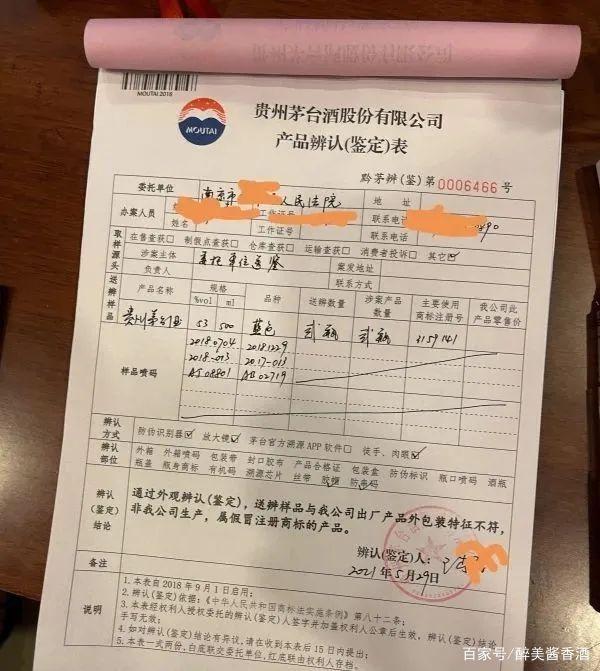 MOUTAI 2018
MOUTAI
贵州茅台酒股份有限公司
产品辨认(鉴定)表
黔茅辨(鉴)第0006466号
委托单位 南京市 人民法院 地址
办案人员 工作证号 联系电话
姓名 工作证号 联系电话
取样源头 在售查获□ 制假点查获□ 仓库查获□ 运输查获□ 消费者投诉□ 其它☑
涉案主体 委托单位送鉴 案发地址
负责人 联系方式
送辨样品 产品名称 规格 %vol ml 品种 送辨数量 涉案产品数量 主要使用商标注册号 我公司此产品零售价
贵州茅台酒 53 500 蓝色 贰瓶 贰瓶 3159141
样品喷码
20180704 20181229
2018-013 2017-013
AJ08801 AB02719
辨认方式 防伪识别器☑ 放大镜☑ 茅台官方溯源APP软件□ 徒手、肉眼☑
辨认部位 外箱 外箱喷码 包装带 封口胶布 产品合格证 包装盒 防伪标识 瓶口喷码 酒瓶
瓶盖 瓶身商标 有机码 溯源芯片 丝带 胶帽 防串码
辨认(鉴定)结论 通过外观辨认(鉴定)，送辨样品与我公司出厂产品外包装特征不符，
非我公司生产，属假冒注册商标的产品。
辨认(鉴定)人：
2021年5月29日
备注
说明
1.本表自2018年9月1日启用；
2.辨认(鉴定)依据：《中华人民共和国商标法实施条例》第八十二条；
3.本表经权利人授权委托的辨认(鉴定)人签字并加盖权利人公章后生效，辨认(鉴定)结论
手写无效；
4.如对辨认(鉴定)结论有异议，请在收到本表后15日内提出；
5.本表一式两份，白底联交委托单位，红底联由权利人存档。
百家号/醉美酱香酒